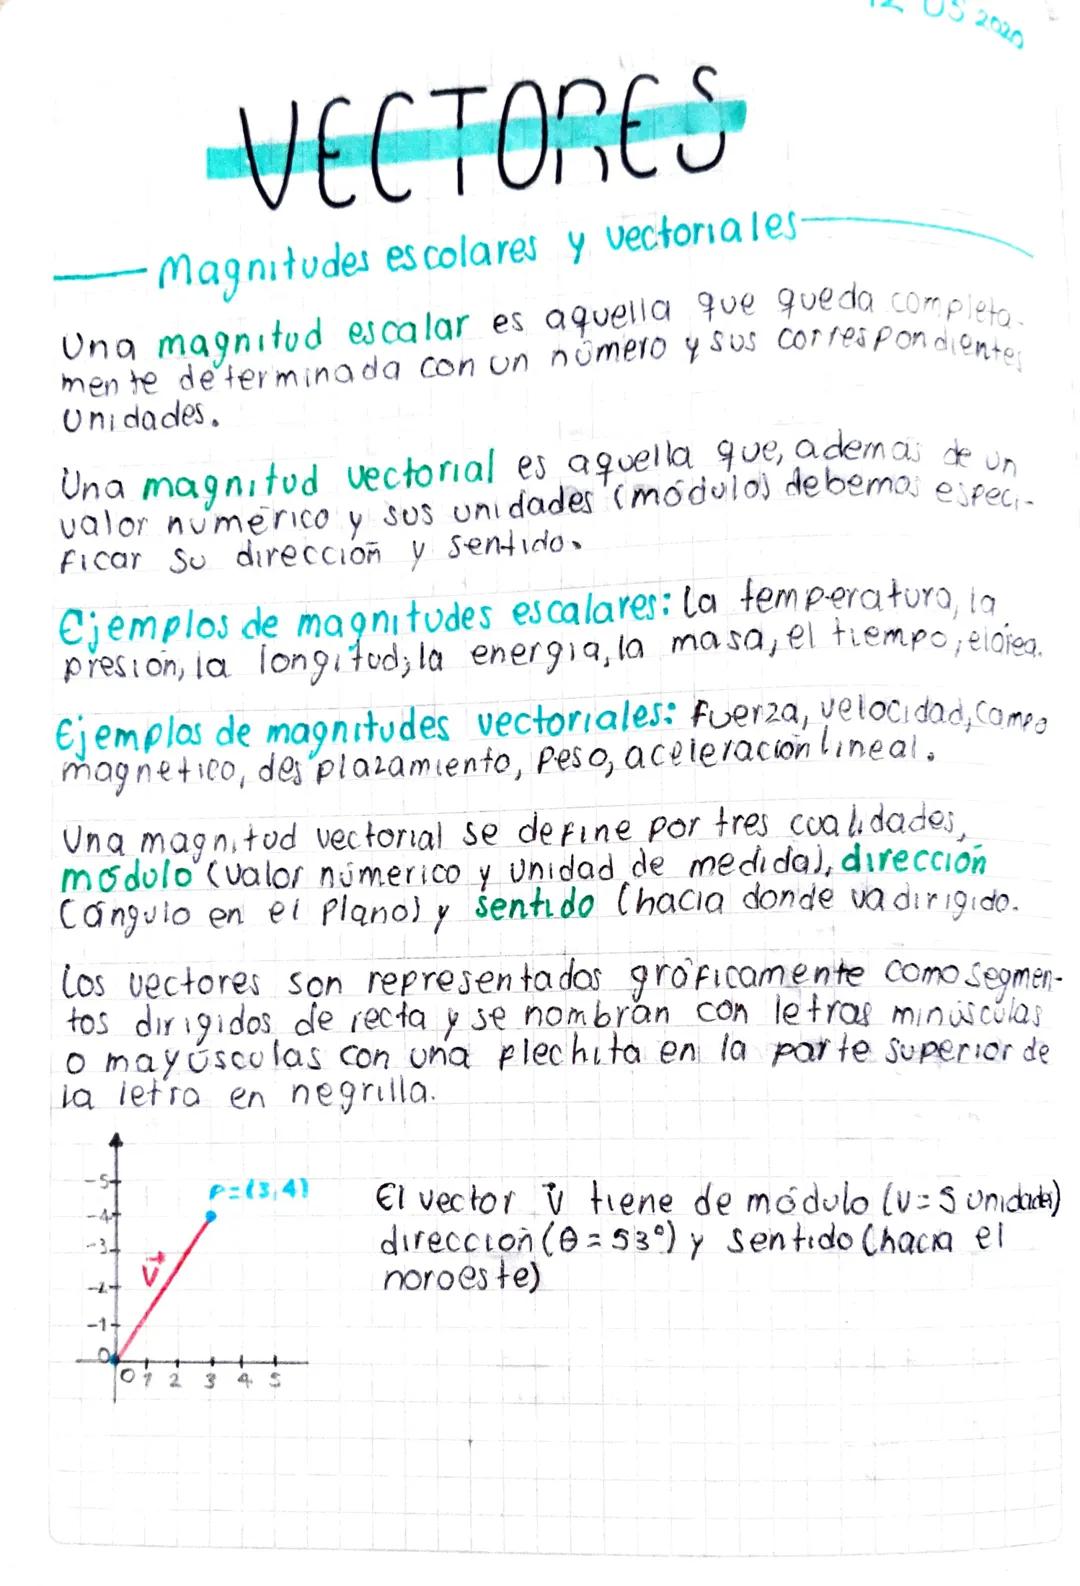 05 2020
VECTORES
Magnitudes escolares y vectoriales
Una magnitud escalar es aquella que queda completa-
mente determinada con un número y sus correspondientes
unidades.
Una magnitud vectorial es aquella que, además de un
valor numérico y sus unidades (módulo) debemos especi-
ficar su dirección y sentido.
Ejemplos de magnitudes escalares: La temperatura, la
presión, la longitud, la energia, la masa, el tiempo, el área.
Ejemplos de magnitudes vectoriales: fuerza, velocidad, campo
magnetico, desplazamiento, peso, aceleración lineal.
Una magnitud vectorial se define por tres cualidades,
módulo (valor númerico y unidad de medida), dirección
(ángulo en el plano) y sentido (hacia donde va dirigido.
Los vectores son representados gráficamente como segmen-
tos dirigidos de recta y se nombran con letras minúsculas
o mayúsculas con una flechita en la parte superior de
la letra en negrilla.
-5
P=(3,4)
-4
-3
V
-2
-1
0
0 1 2 3 4 5
El vector v tiene de módulo (v=5 unidades)
dirección (θ = 53°) y sentido (hacia el
noroeste)